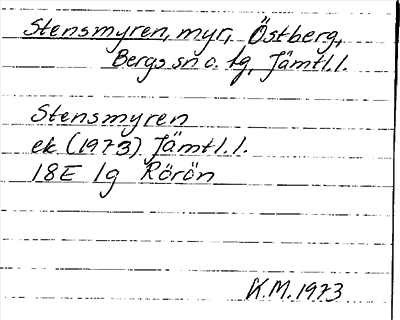 Stensmyren, myr, Östberg,
Bergs sn o. tg, Jämtl.l.
Stensmyren
ek (1973) Jämtl.l.
18E 1g Rörön
K.M. 1973